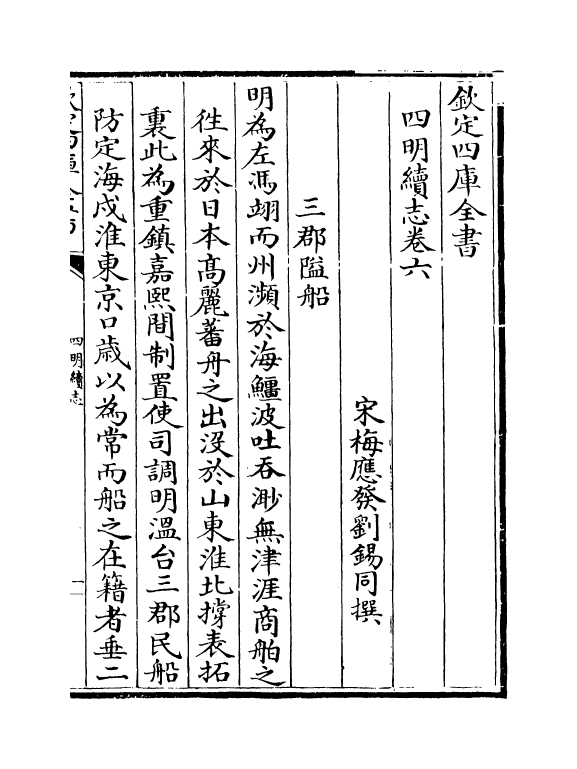 欽定四庫全書
四明續志卷六
宋梅應發劉錫同撰
三郡隘船
明為左馮翊而州瀕於海鱷波吐吞渺無津涯商舶之
徃來於日本髙麗蕃舟之出沒於山東淮北撐表拓
裏此為重鎮嘉熙間制置使司調明温台三郡民船
防定海戍淮東京口歳以為常而船之在籍者垂二
四明續志